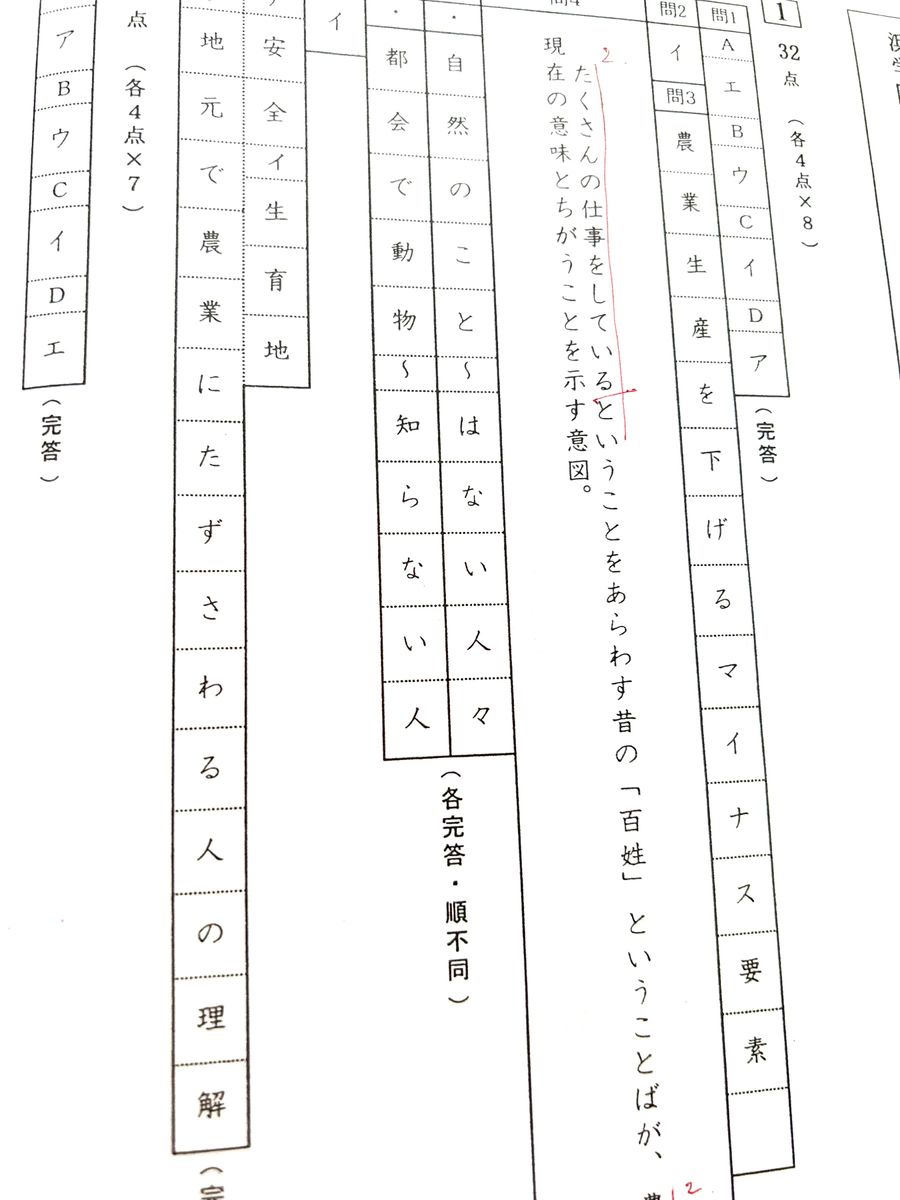 1
32点（各4点×8）
問1
AエBウCイDア
（完答）
問2
イ
問3
農業生産を下げるマイナス要素
2
たくさんの仕事をしているということをあらわす昔の「百姓」ということばが、
現在の意味とちがうことを示す意図。
2
・自然のこと～はない人々
・都会で動物～知らない人
（各完答・順不同）
イ
安全イ生育地
地元で農業にたずさわる人の理解
点（各4点×7）
アBウCイDエ
（完答）